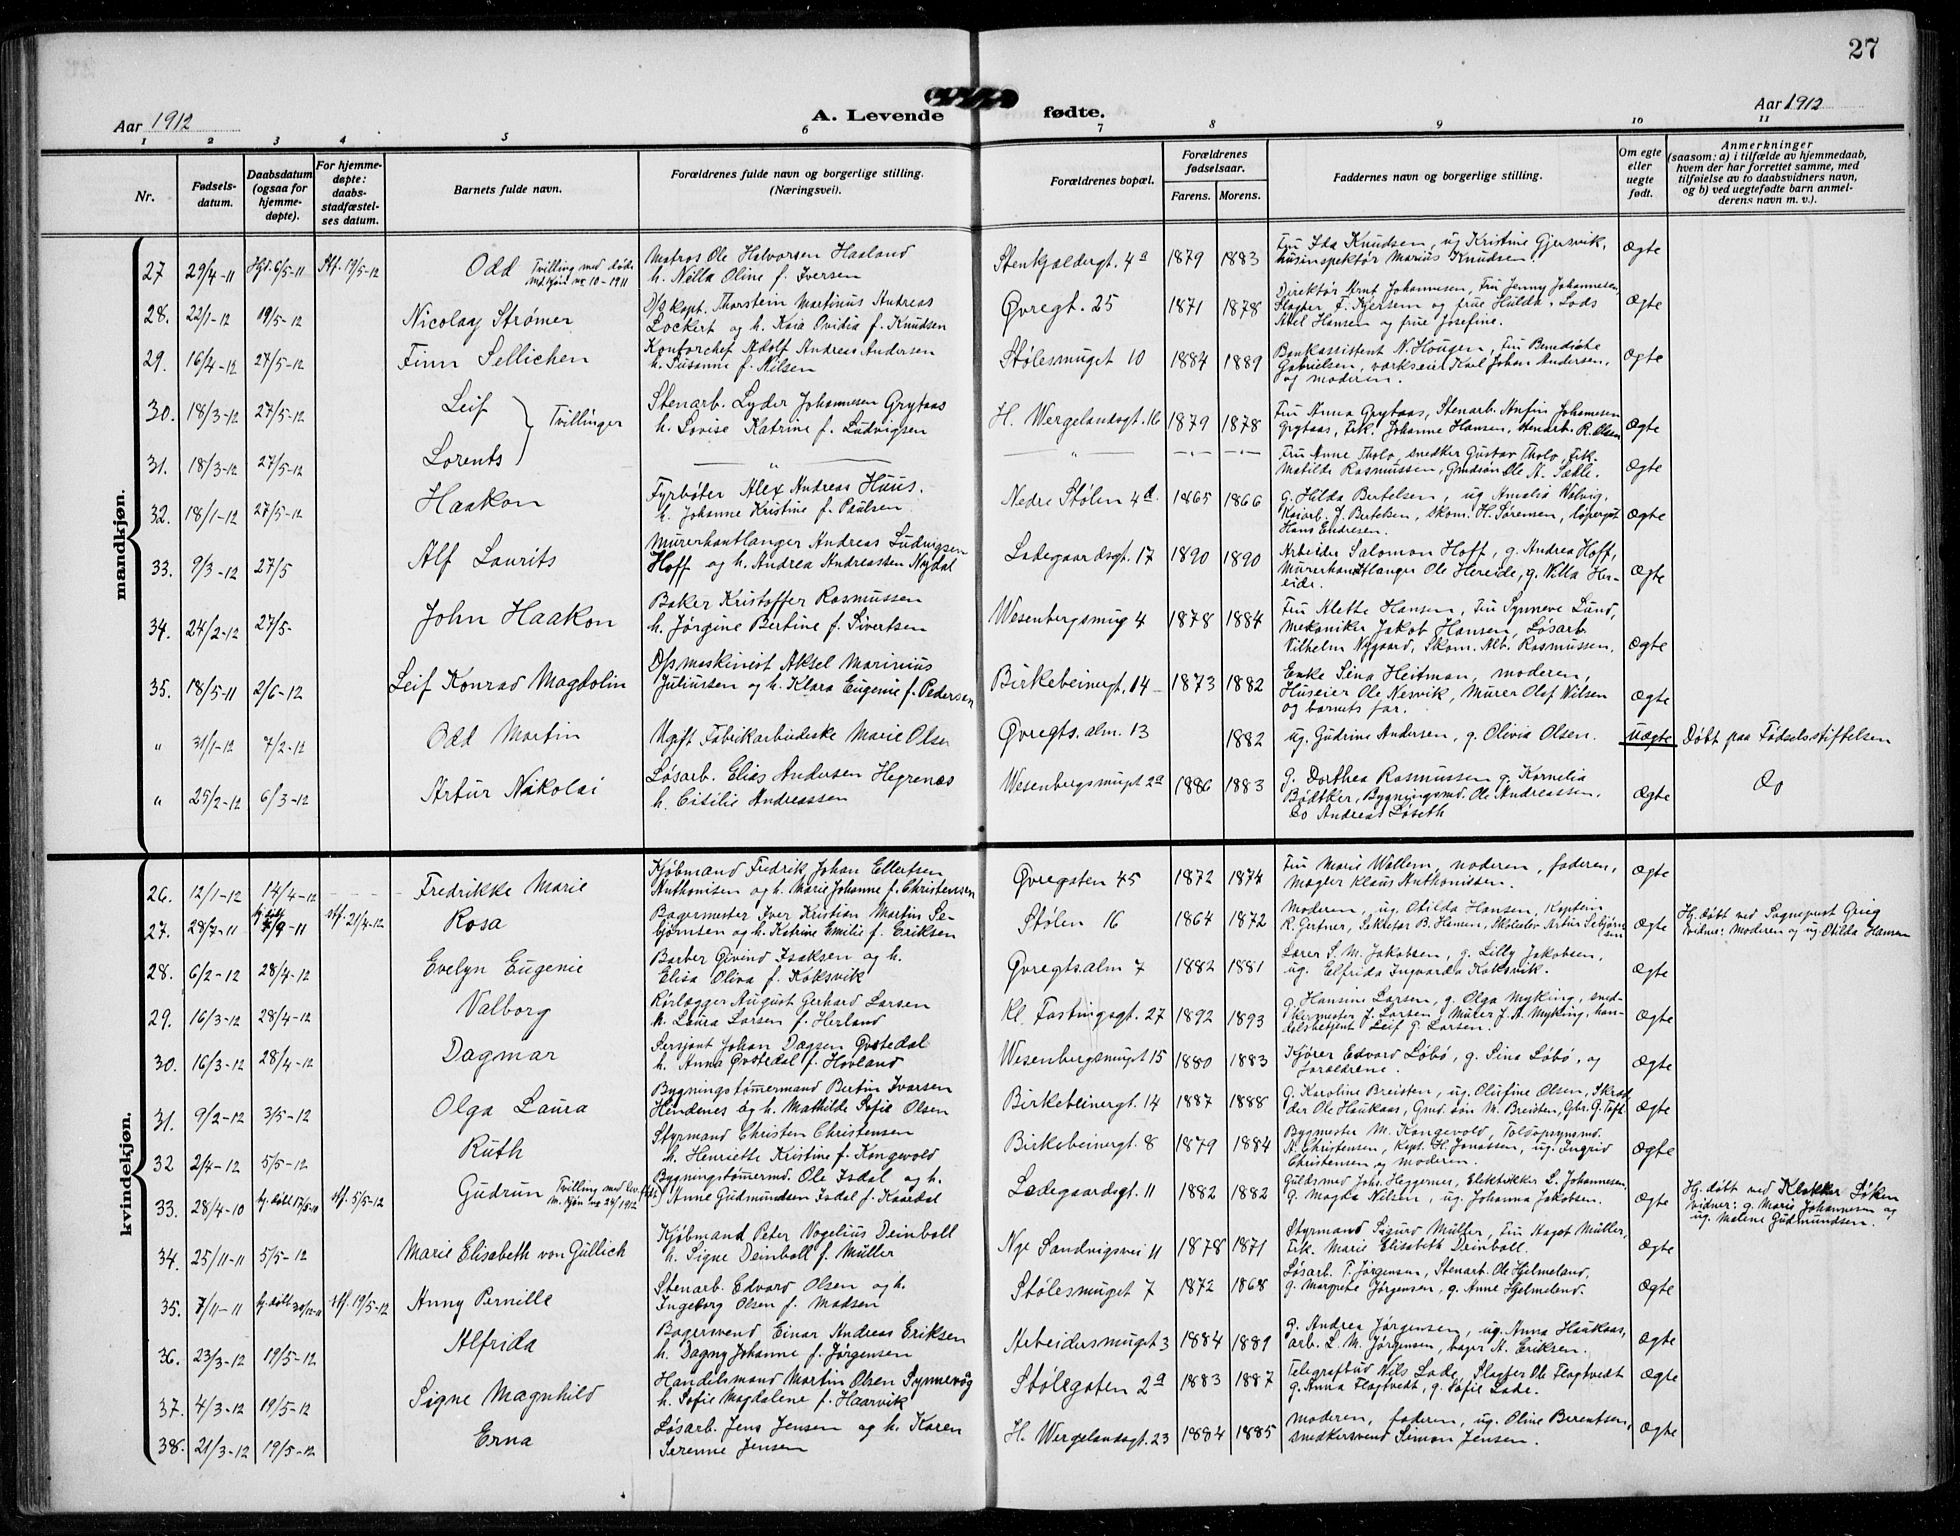 27
Aar 1912
A. Levende fødte.
Aar 1912
1 2 3 4 5 6 7 8 9 10 11
Nr.
Fødsels-
datum.
Daabsdatum
(ogsaa for
hjemme-
døpte).
For hjemme-
døpte:
daabs-
stadfæstel-
ses datum.
Barnets fulde navn.
Forældrenes fulde navn og borgerlige stilling.
(Næringsvei).
Forældrenes bopæl.
Forældrenes
fødselsaar.
Farens. Morens.
Faddernes navn og borgerlige stilling.
Om egte
eller
uegte
født.
Anmerkninger
(saasom: a) i tilfælde av hjemmedaab,
hvem der har forrettet samme, med
tilføielse av to daabsvidners navn,
og b) ved uegtefødte barn anmel-
derens navn m. v.).
mandkjøn.
27 29/4-11 Hjd. 6/5-11 Stf. 19/5-12 Odd Tvilling med døde m.kjøn nr 10-1911
Matros Ole Halvorsen Haaland
h. Nilla Oline f. Iversen
Stenkjeldergt. 4a 1879 1883
Fru Ida Knudsen, ug Kristine Gjersvik,
husinspektør Marius Knudsen
Ægte
28. 22/1-12 19/5-12 Nicolay Strømer
D/s kapt. Thorstein Martinus Andreas
Lockert og h. Kaia Ovidia f. Knudsen
Øvregt. 25 1871 1878
Direktør Arnt Johannesen, Fru Jenny Johannesen,
Slagter F. Kjersem og frue Hulda, Lods
Axel Hansen og frue Josefine.
Ægte
29. 16/4-12 27/5-12 Finn Sellichen
Kontorchef Adolf Andreas Andersen
h. Susanne f. Nilsen
Stølesmuget 10 1884 1889
Bankassistent N. Hougen, Fru Benedicte
Gabrielsen, verkseier Karl Johan Andersen,
og moderen.
Ægte
30. 18/3-12 27/5-12 Leif } Tvillinger
Stenarb. Lyder Johannesen Grytaas
h. Lovise Katrine f. Ludvigsen
H. Wergelandsgt. 16 1879 1878
Fru Anna Grytaas, Stenarb. Anfin Johannesen
Grytaas, Frk. Johanne Hansen, stenarb. R. Olsen
Ægte
31. 18/3-12 27/5-12 Lorents
— „ — — „ — —.— —.—
Fru Anne Tholo, snedker Gustav Tholo, Frk.
Matilde Rasmussen, Gmdsøn Ole A. Sæle.
Ægte
32. 18/1-12 27/5-12 Haakon
Fyrbøter Alex Andreas Huus.
h. Johanne Kristine f. Paulsen
Nedre Stølen 4d. 1865 1866
g. Hilda Bertelsen, ug Amalia Walvig,
Kaiarb. J. Bertelsen, skom. H. Sørensen, løpergut
Hans Endresen.
Ægte
33. 9/3-12 27/5 Alf Laurits
Murerhantlanger Andreas Ludvigsen
Hoff og h. Andrea Andreassen Nydal
Ladegaardsgt. 17 1890 1890
Arbeider Salomon Hoff, g. Andrea Hoff,
Murerhantlanger Ole Hereide, g. Villa Her-
eide.
Ægte
34. 24/2-12 27/5- John Haakon
Baker Kristoffer Rasmussen
h. Jørgine Bertine f. Sivertsen
Wesenbergsmug 4 1878 1884
Fru Alette Hansen, Fru Synneve Lund,
Mekaniker Jakob Hansen, Løsarb.
Vilhelm Nygaard, Skom. Alb. Rasmussen.
Ægte
35. 18/5-11 2/6-12 Leif Konrad Magdolin
D/s maskinist Aksel Marinius
Juliussen og h. Klara Eugenie f. Pedersen
Birkebeinergt. 14 1873 1882
Enke Sina Heitman, moderen,
Huseier Ole Nesvik, Murer Olaf Nilsen
og barnets far.
Ægte
„ 31/1-12 7/2-12 Odd Martin
Ugift Fabrikarbeiderske Marie Olsen
Øvregts. alm. 13 1882
ug. Gudrine Andersen, g. Olivia Olsen.
Uægte
Døbt paa Fødselsstiftelsen
„ 25/2-12 6/3-12 Artur Nikolai
Løsarb. Elias Andersen Hegrenæs
h. Cisilie Andreassen
Wesenbergsmuget 2a 1886 1883
g. Dorthea Rasmussen g. Kornelia
Bødtker, Bygningssmd. Ole Andreassen,
Do Andreas Løseth
Ægte
Do
kvindekjøn.
26. 12/1-12 14/4-12 Fredrikke Marie
Kjøbmand Fredrik Johan Ellertsen
Anthonisen og h. Marie Johanne f. Christensen
Øvregaten 45 1872 1874
Fru Marie Wallem, moderen, faderen,
Mægler Klaus Anthonissen.
Ægte
27. 28/7-11 hj. døbt 7/9-11 stf. 21/4-12 Rosa
Bagermester Iver Kristian Martin Se-
bjørnsen og h. Katrine Emilie f. Eriksen
Stølen 16 1864 1872
Moderen, ug. Otilda Hansen, Kaptein
R. Gertner, Sekretær B. Hansen, Skoleelev Artur Sebjørnsen
Ægte
Hj. døbt ved Sogneprest Grieg
Vidner: Moderen og ug. Otilda Hansen
28. 6/2-12 28/4-12 Evelyn Eugenie
Barber Øivind Isaksen og h.
Elisa Oliva f. Koksvik
Øvregts. alm 7 1882 1881
Lærer S. M. Jakobsen, g. Lilly Jakobsen,
ug. Elfrida Ingvarda Koksvik.
Ægte
29. 16/3-12 28/4-12 Valborg
Rørlægger August Gerhard Larsen
h. Laura Larsen f. Herland
Kl. Fastingsgt. 27 1892 1893
g. Hansine Larsen, g. Olga Myking, sned-
kermester J. Larsen, Murer J. A. Myking, han-
delsbetjent Leif G. Larsen.
Ægte
30. 16/3-12 28/4-12 Dagmar
Sersjant Johan Dagsen Øvstedal
h. Anna Øvstedal f. Hovland
Wesenbergsmuget 15 1880 1883
Kjører Edvard Løbø, g. Sina Løbø, og
foreldrene.
Ægte
31. 9/2-12 3/5-12 Olga Laura
Bygningstømmermand Bertin Ivarsen
Hendenes og h. Mathilde Sofie Olsen
Birkebeinergt. 14 1887 1888
g. Karoline Breisten, ug. Olufine Olsen, Skræd-
der Ole Haukaas, Gmd. søn M. Breisten, Gbr. G. Toft
Ægte
32 2/4-12 5/5-12 Ruth
Styrmand Christen Christensen
h. Henriette Kristine f. Kongevold
Birkebeinergt. 8 1879 1884
Bygmester M. Kongevold, Toldopsynsmd.
A. Christensen, Kapt. H. Jonassen, ug. Ingrid
Christensen og moderen.
Ægte
33. 28/4-10 hj. døbt 17/5-10 stf. 5/5-12 Gudrun
Bygningstømermd. Ole Isdal og h.
Anne Gudmundsen Isdal f. Kaardal
Ladegaardsgt. 11 1882 1882
Guldsmed Joh. Heggernes, Elektrikker L. Johannesen,
g. Magda Nilsen, ug. Johanna Jakobsen.
Ægte
Hj. døbt ved Klokker Løken
Vidner: g. Marie Johannesen og
ug. Malene Gudmundsen.
34. 25/11-11 5/5-12 Marie Elisabeth von Güllich
Kjøbmand Peter Vogelius Deinboll
h. Signe Deinboll f. Müller
Nye Sandvigsvei 11 1878 1871
Styrmand Sigurd Müller, Fru Aagot Müller,
Frk. Marie Elisabeth Deinboll.
Ægte
35. 7/11-11 hj. døbt 30/12-11 stf. 19/5-12 Anny Pernille
Stenarb. Edvard Olsen og h.
Ingeborg Olsen f. Madsen
Stølesmuget 7 1872 1868
Løsarb. T. Jørgensen, Stenarb. Ole Hjelmeland,
g. Margrete Jørgensen, g. Anne Hjelmeland.
Ægte
36. 23/3-12 19/5-12 Alfrida
Bagersvend Einar Andreas Eriksen
h. Dagny Johanne f. Jørgensen
Arbeidersmuget 3 1884 1881
g. Andrea Jørgensen, ug. Anna Haukaas,
arb. L. M. Jørgensen, bager A. Eriksen.
Ægte
37. 4/3-12 19/5-12 Signe Magnhild
Handelsmand Martin Olsen Synnevåg
h. Sofie Magdalene f. Haarvik
Stølegaten 2a 1883 1887
Telegrafbud Nils Lade, Slagter Ole Flagtvedt
g. Anna Flagtvedt, g. Sofie Lade.
Ægte
38. 21/3-12 19/5-12 Erna
Løsarb. Jens Jensen og h. Karen
Serenne Jensen
H. Wergelandsgt. 23 1884 1885
Moderen, faderen, ug. Oline Berentsen,
snedkersvend Simon Jensen.
Ægte